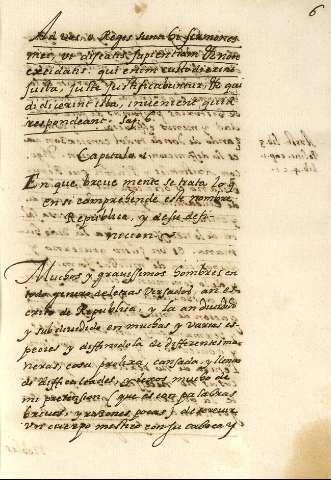 6
Ad vos o Reges sunt hi sermones
mei, ut discatis sapientiam & non
excidatis: qui enim custodierint
justa, juste justificabuntur, & qui
didicerint ista, invenient quid
respondeant. Sap. 6.
Capitulo 1.
En que brevemente se trata lo q
en si comprehende este nombre
Republica, y de su defi-
nicion
Muchos y gravissimos hombres en
todo genero de letras versados, an es-
crito de Republica, y la an dividido
y subdividido en muchas y varias es-
pecies y diffinidola de differentes ma-
neras, cosa prolixa, cansada, y llena
de difficultades, ageno mucho de
mi pretension (que es con palabras
breves, y razones pocas) de
un cuerpo mistico con su cabeça y